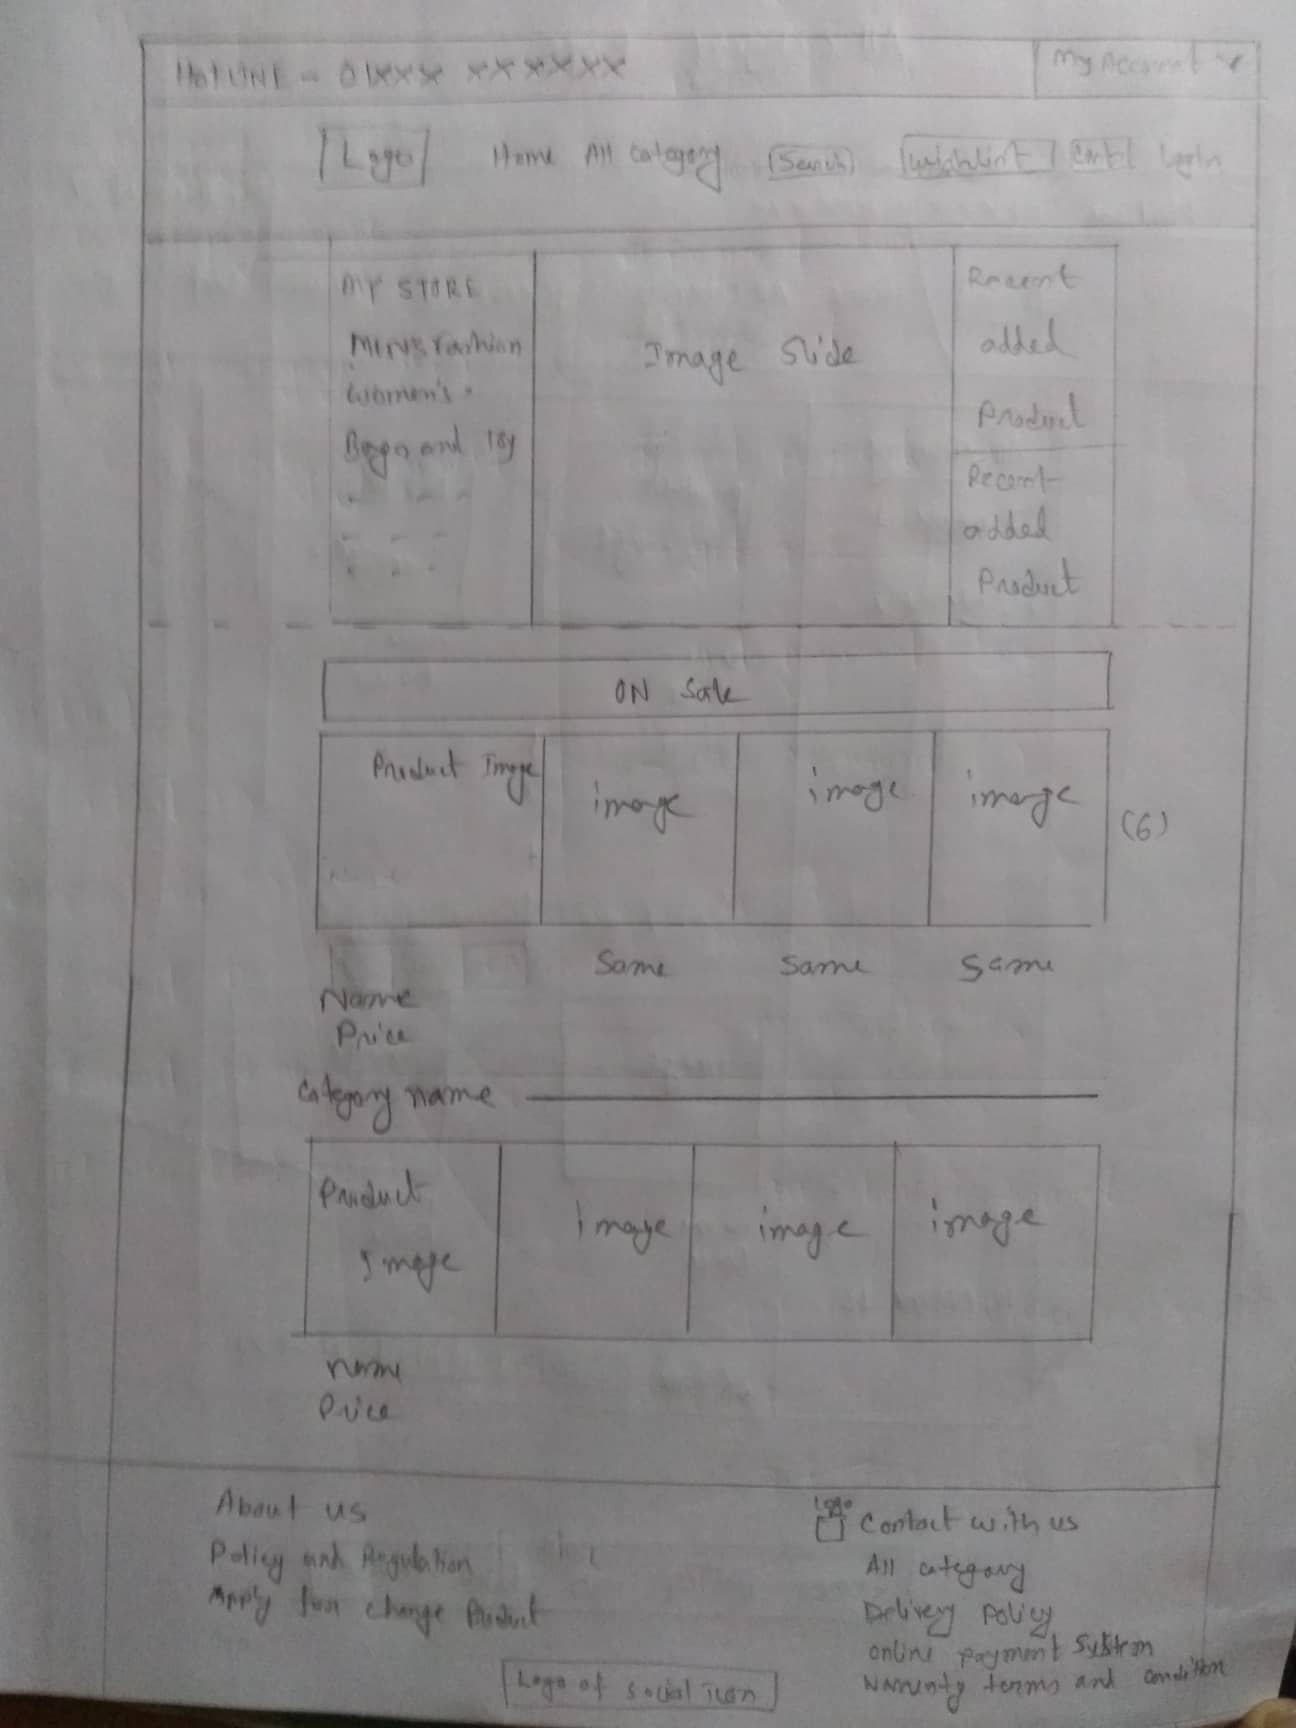 HOTLINE - 01XXX XXXXXX
My Account
Logo Home All Category Search wishlist Cart Login
MY STORE
Men's Fashion
Women's "
Bags and
Image Slide
Recent
added
Product
Recent
added
Product
ON Sale
Product Image
image
image
image
(6)
Same Same Same
Name
Price
Category name
Product
Image
image
image
image
name
Price
About us
Policy and Regulation
Apply for change Product
Logo
Contact with us
All category
Delivery policy
online payment system
Warrenty terms and condition
Logo of social icon